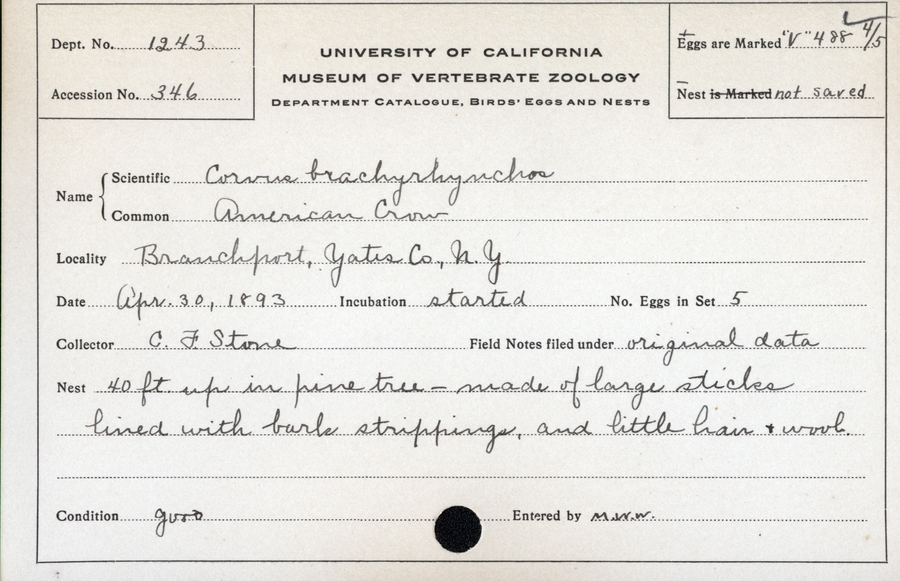 Dept. No. 1243
Accession No. 346
UNIVERSITY OF CALIFORNIA
MUSEUM OF VERTEBRATE ZOOLOGY
DEPARTMENT CATALOGUE, BIRDS' EGGS AND NESTS
Eggs are Marked "V" 488 4/5
Nest is Marked not saved
Name
Scientific Corvus brachyrhynchos
Common American Crow
Locality Branchport, Yates Co., N.Y.
Date Apr. 30, 1893 Incubation started No. Eggs in Set 5
Collector C. F Stone Field Notes filed under original data
Nest 40 ft up in pine tree – made of large sticks
lined with bark strippings, and little hair + wool.
Condition good Entered by M.W.W.